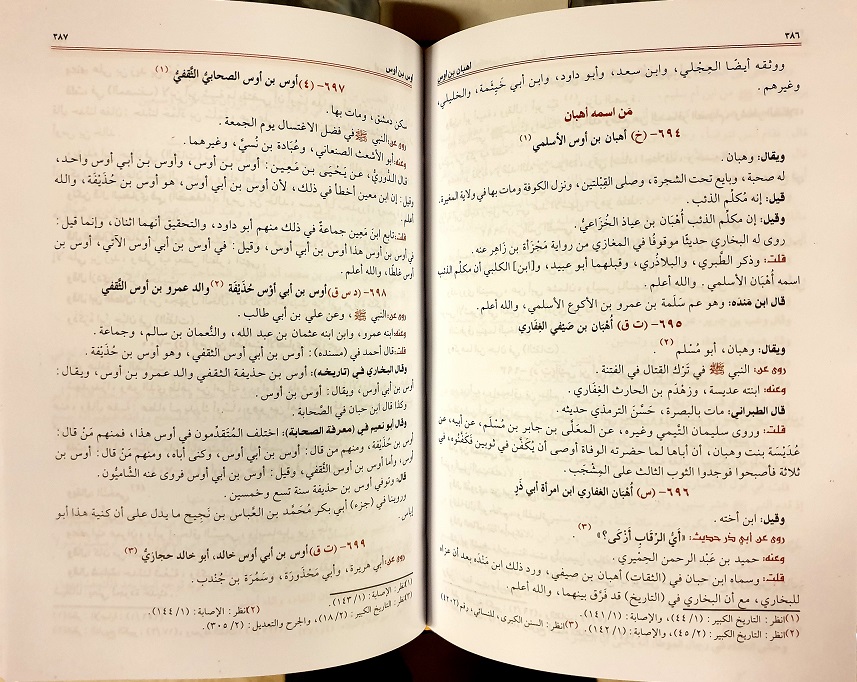 ٣٨٦
أهبان بن أوس
ووثقه أيضًا العِجْلي، وابن سعد، وأبو داود، وابن أبي خَيْثمة، والخليلي،
وغيرهم.
مَن اسمه أهبان
٦٩٤- (خ) أهبان بن أوس الأسلمي (١)
ويقال: وهبان.
له صحبة، وبايع تحت الشجرة، وصلى القِبْلتين، ونزل الكوفة ومات بها في ولاية المغيرة.
قيل: إنه مُكلِّم الذئب.
وقيل: إن مكلم الذئب أُهْبَان بن عياذ الخُزَاعيُّ.
روى له البخاري حديثًا موقوفًا في المغازي من رواية مَجْزَأة بن زَاهِر عنه.
قلت: وذكر الطَّبري، والبلاذُري، وقبلهما أبو عبيد، و[ابن] الكلبي أن مكلم الذئب
اسمه أُهْبَان الأسلمي. والله أعلم.
قال ابن مَنده: وهو عم سَلَمة بن عمرو بن الأكوع الأسلمي، والله أعلم.
٦٩٥- (ت ق) أُهْبَان بن صَيْفي الغِفاري
ويقال: وهبان، أبو مُسْلم (٢).
روى عن: النبي ﷺ في تَرْك القتال في الفتنة.
وعنه: ابنته عديسة، وزَهْدَم بن الحارث الغِفَاري.
قال الطبراني: مات بالبصرة، حَسَّنَ الترمذي حديثه.
قلت: وروى سليمان التَّيمي وغيره، عن المعَلَّى بن جابر بن مُسْلم، عن أبيه، عن
عُدَيْسَة بنت وهبان، أن أباها لما حضرته الوفاة أوصى أن يُكفَّن في ثوبين فَكَفَّنُوه في
ثلاثة فأصبحوا فوجدوا الثوب الثالث على المِشْجَب.
٦٩٦- (س) أُهْبَان الغفاري ابن امرأة أبي ذَرٍ
وقيل: ابن أخته.
روى عن أبي ذر حديث: «أيُّ الرِّقَابِ أَزْكَى؟» (٣).
وعنه: حميد بن عَبد الرحمن الحِمْيري.
قلت: وسماه ابن حبان في (الثقات) أهبان بن صيفي، ورد ذلك ابن مَنْدَه بعد أن عزاه
للبخاري، مع أن البخاري في (التاريخ) قد فَرَّق بينهما، والله أعلم.
(١) انظر: التاريخ الكبير: (٤٤/١)، والإصابة: (١٤١/١).
(٢) انظر: التاريخ الكبير: (٤٥/٢)، والإصابة: (١٤٢/١). (٣) انظر: السنن الكبرى، للنسائي، رقم
٣٨٧
أوس بن أوس
٦٩٧- (٤) أوس بن أوس الصحابيُّ الثَّقفيُّ (١)
سكن دمشق، ومات بها.
روى عن: النبي ﷺ في فضل الاغتسال يوم الجمعة.
وعنه: أبو الأشعث الصنعاني، وعُبَادة بن نُسيٍّ، وغيرهما.
قال الدُّوريُّ، عن يَحْيَى بن مَعِين: أوس بن أوس، وأوس بن أبي أوس واحد،
وقيل: إن ابن معين أخطأ في ذلك، لأن أوس بن أبي أوس، هو أوس بن حُذَيْفَة، والله
أعلم.
قلت: تابع ابنَ مَعِين جماعةٌ في ذلك منهم أبو داود، والتحقيق أنهما اثنان، وإنما قيل:
في أوس بن أوس هذا أوس بن أبي أوس، وقيل: في أوس بن أبي أوس الآتي، أوس بن
أوس غلطًا، والله أعلم.
٦٩٨- (د س ق) أوس بن أبي أوْس حُذَيْفَة (٢) والد عمرو بن أوس الثَّقفي
روى عن: النبي ﷺ، وعن علي بن أبي طالب.
وعنه: ابنه عمرو، وابن ابنه عثمان بن عبد الله، والنُّعمان بن سالم، وجماعة.
قلت: قال أحمد في (مسنده): أوس بن أبي أوس الثقفي، وهو أوس بن حُذَيْفَة.
وقال البخاري في (تاريخه): أوس بن حذيفة الثقفي والد عمرو بن أوس، ويقال:
أوس بن أبي أوس، ويقال: أوس بن أوس.
وكذا قال ابن حبان في الصَّحابة.
وقال أبو نعيم في (معرفة الصحابة): اختلف المُتَقدِّمون في أوس هذا، فمنهم مَنْ قال:
أوس بن حُذَيْفَة، ومنهم من قال: أوس بن أبي أوس، وكنى أباه، ومنهم مَنْ قال: أوس بن
أوس، وأما أوس بن أوس الثَّقفي، وقيل: أوس بن أبي أوس فروى عنه الشَّاميُّون.
قال: وتوفي أوس بن حذيفة سنة تسع وخمسين.
وروينا في (جزء) أبي بكر مُحَمَّد بن العباس بن نَجيح ما يدل على أن كنية هذا أبو
إياس.
٦٩٩- (ت ق) أوس بن أبي أوس خالد، أبو خالد حجازيٌّ (٣)
روى عن: أبي هريرة، وأبي مَحْذُورَة، وسَمُرَة بن جُندب.
(١) انظر: الإصابة: (١٤٣/١).
(٢) انظر: الإصابة: (١٤٤/١).
(٣) انظر: التاريخ الكبير: (١٨/٢)، والجرح والتعديل: (٣٠٥/٢).